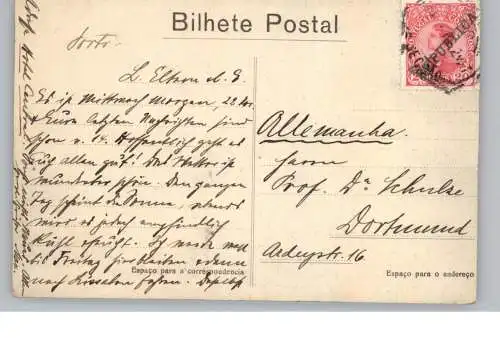 Bilhete Postal
Porto.
L. Eltern u. G.
Es ist Mittwoch Morgen, 22.
Eure letzten Nachrichten sind
schon v. 14. Hoffentlich geht es
Euch allen gut! Das Wetter ist
wunderbar schön. Den ganzen
Tag scheint die Sonne, abends
wird es jedoch empfindlich
kühl feucht. Ich werde wohl
bis Freitag hier bleiben u. dann
nach Lissabon fahren.
Espaço para a correspondencia
REPUBLICA
Allemanha.
Herrn
Prof. Dr. Schulze
Dortmund
Ardeystr. 16
Espaço para o endereço